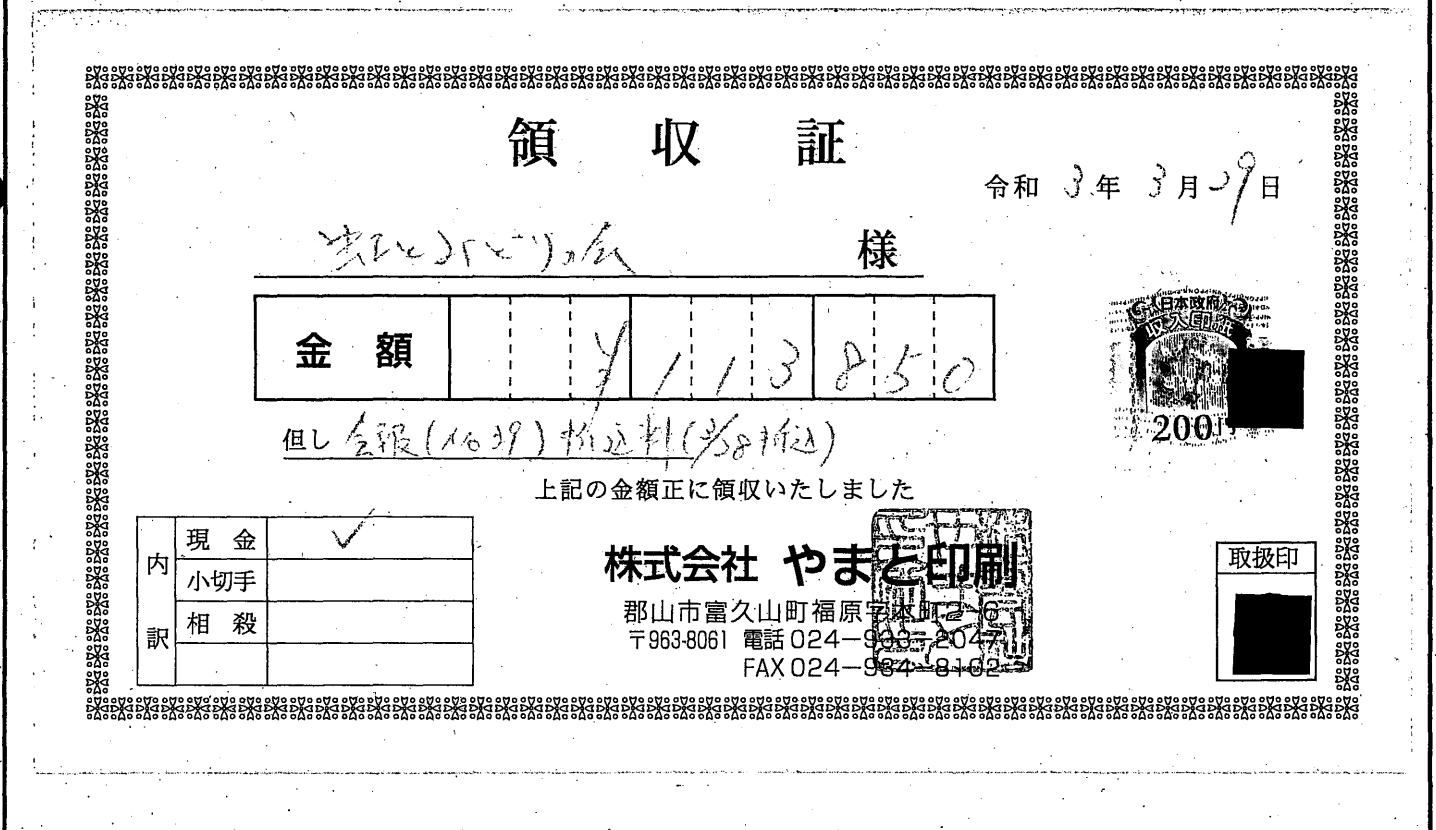 領収証
令和 3年 3月29日
虹とみどりの会 様
金額 ¥113850
但し 会報(No39)折込料(3/28折込)
上記の金額正に領収いたしました
日本政府
収入印紙
200円
内訳
現金 ✓
小切手
相殺
株式会社 やまと印刷
郡山市富久山町福原字本町2-6
〒963-8061 電話024-933-2047
FAX024-934-8102
取扱印